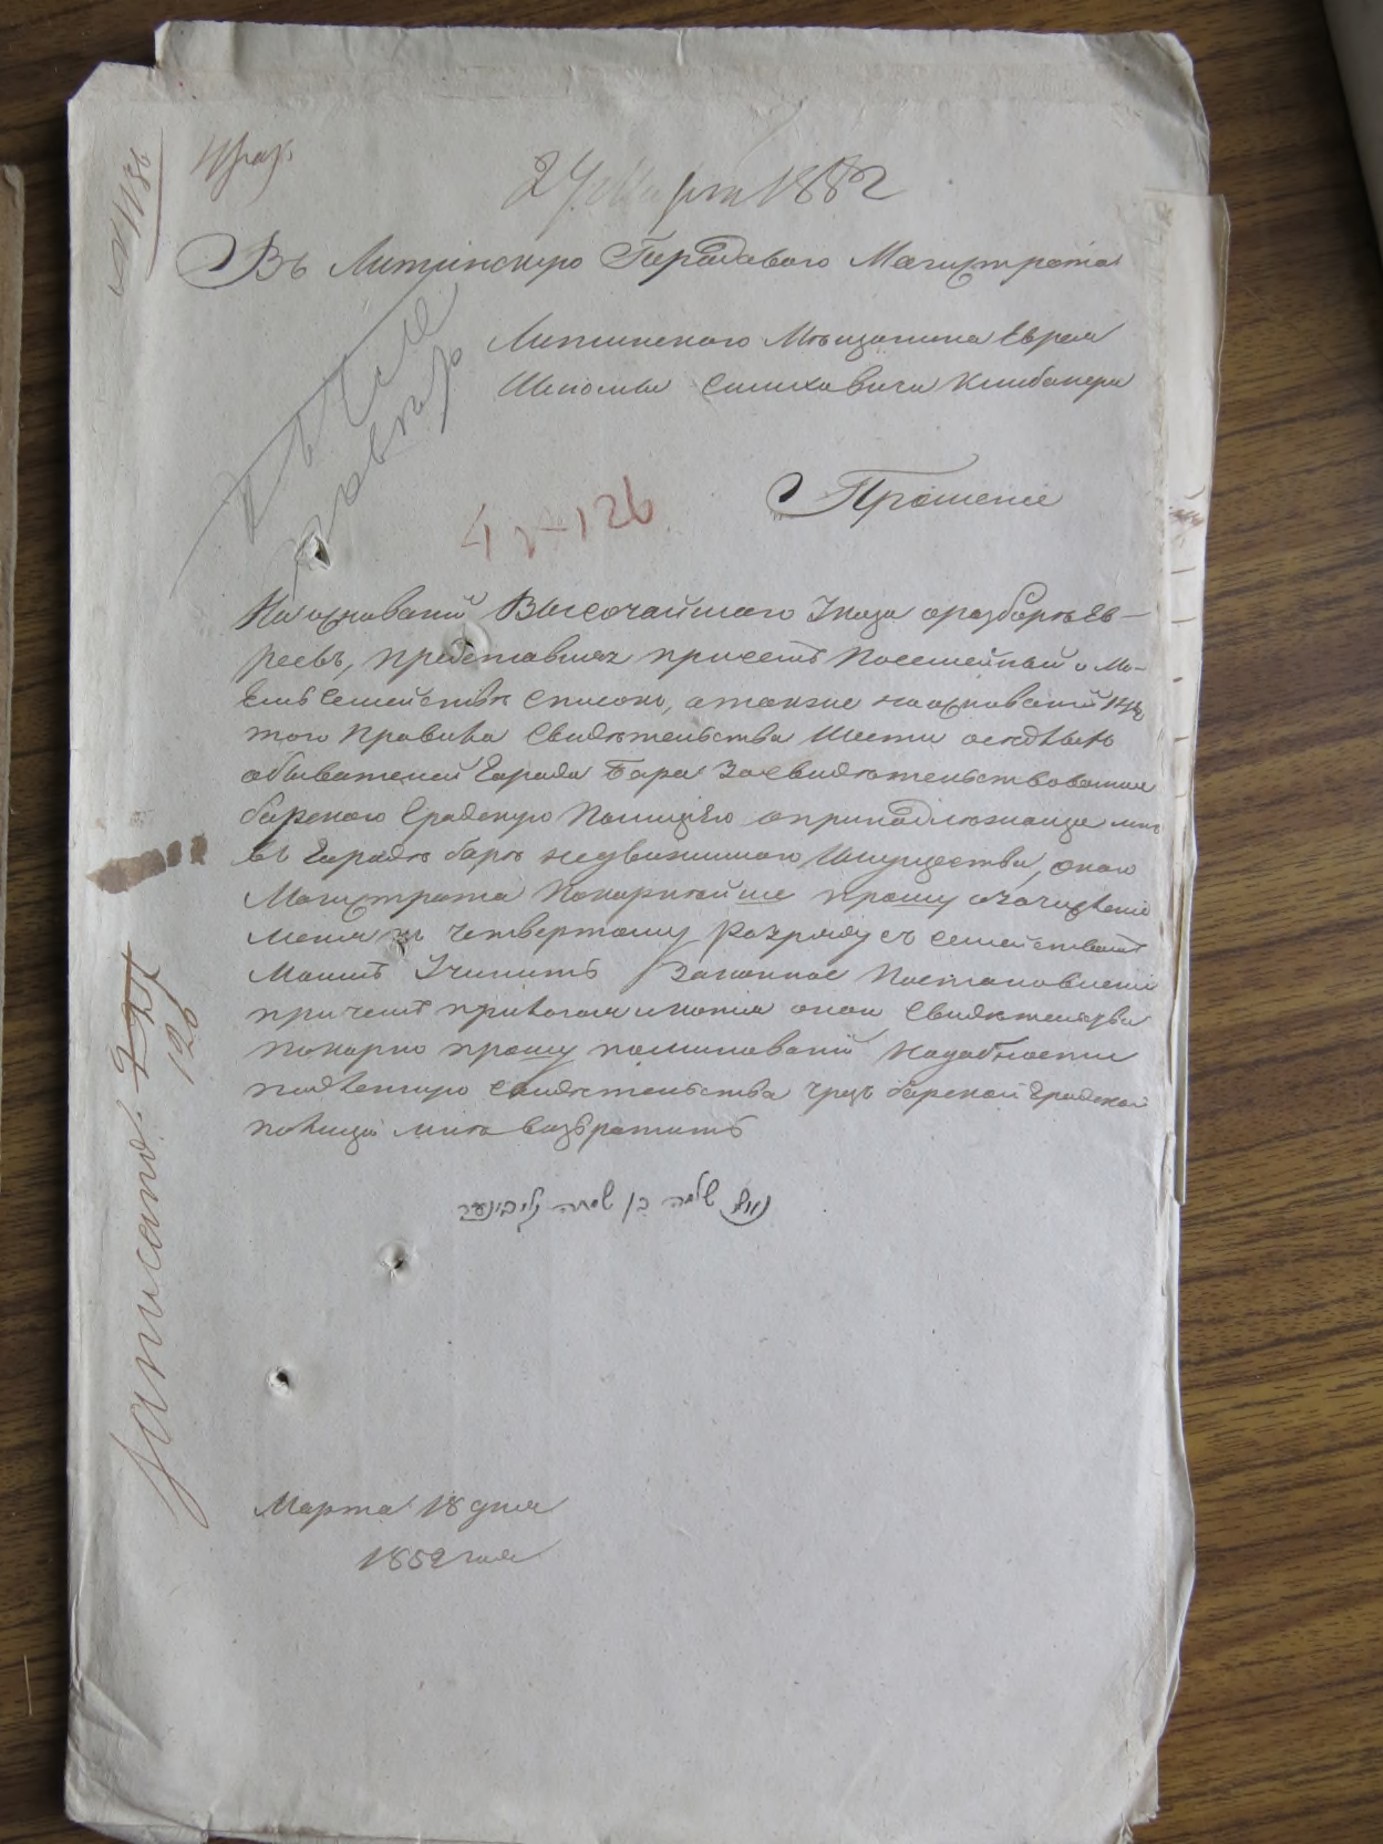 № 1186
27 Марта 1852
Въ Литинскую Городоваго Магистрата
Литинского Мещанина Еврея
Шлiомы Симховича Клибанера
Прошение
4 р 126
На основаніи Высочайшаго Указа оразборе Ев-
реевъ, представляя присемъ Посемейный о мо-
емъ семействе списокъ, атакже наоснованіи
того правила Свидетельства Шести оседлыхъ
обывателей Города Бара Засвидетельствованная
барскою Градскую Полицею опринадлежащемъ мне
въ Городе баре недвижимого Имущества, оного
Магистрата Покорнейше прошу озачислении
меня къ Четвертому Разряду съ семействомъ
Моимъ Учинить Законное Постановленіе
причемъ прилагая имения оном Свидетельства
покорно прошу поминованіи Надобности
подленную свидетельства чрезъ барской Градской
полиціи мне возвратить
נאום שלמה בן שמחה קליבינער
Марта 18 дня
1852 года
Записано.
126